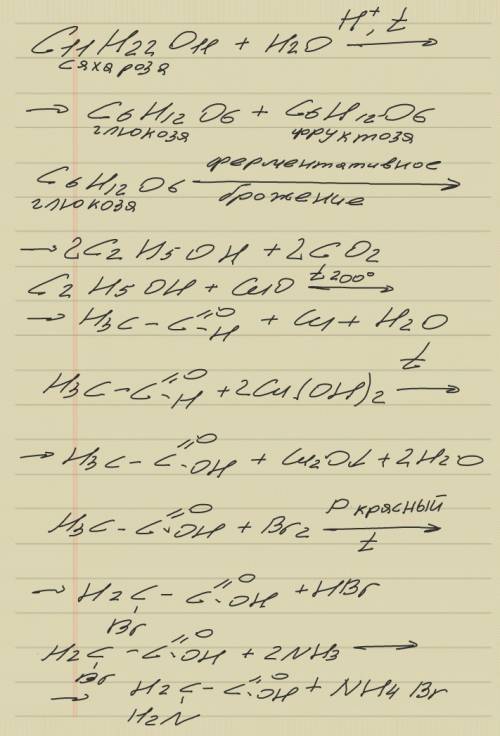 C11H22O11 + H2O H+, t →
сахароза
→ C6H12O6 + C6H12O6
глюкоза фруктоза
C6H12O6 ферментативное брожение →
глюкоза
→ 2C2H5OH + 2CO2
C2H5OH + CuO t 200° →
→ H3C - C =O -H + Cu + H2O
H3C - C =O -H + 2Cu(OH)2 t →
→ H3C - C =O -OH + Cu2O↓ + 2H2O
H3C - C =O -OH + Br2 P красный t →
→ H2C - C =O -OH + HBr
Br
H2C - C =O -OH + 2NH3 →
Br
→ H2C - C =O -OH + NH4Br
H2N